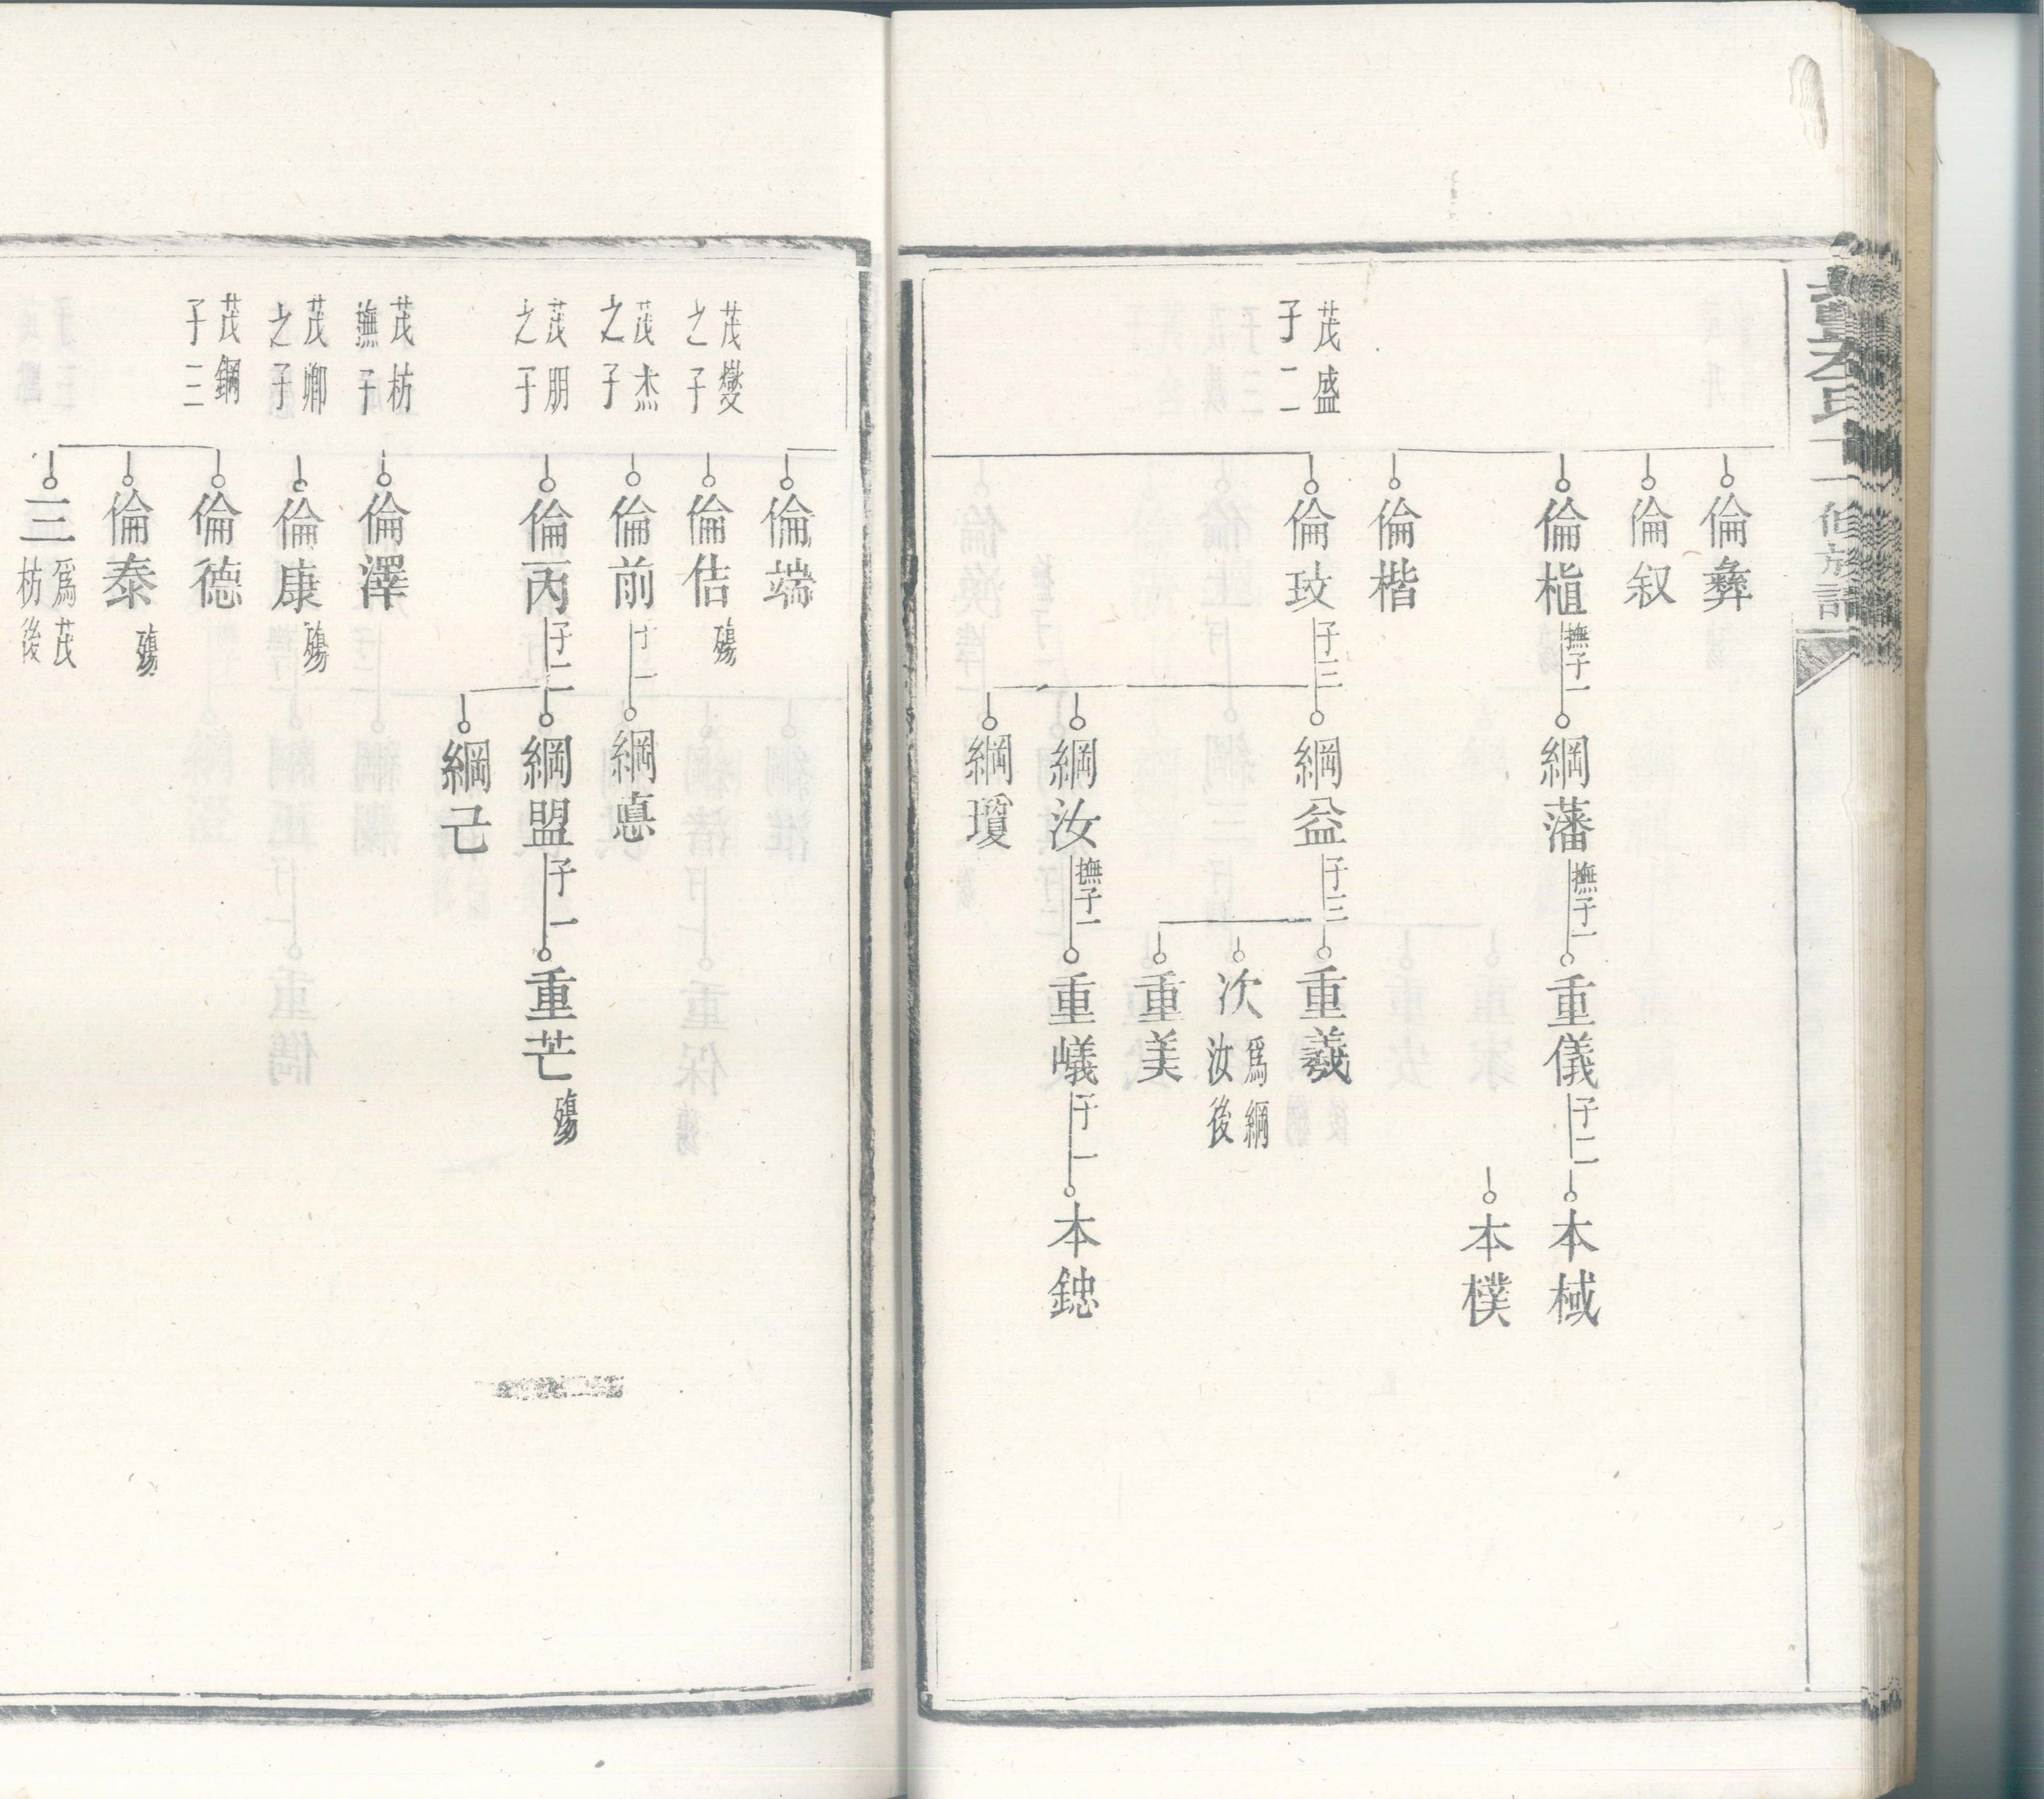 氏
修族譜
倫彝
倫叙
倫植
撫子一
綱藩
撫子一
重儀
子二
本棫
本樸
倫楷
茂盛
子二
倫玟
子三
綱益
子三
重羲
次
爲綱
汝後
重美
綱汝
撫子一
重㠖
子一
本鍃
綱瓊
倫端
茂燮
之子
倫佶
殤
茂杰
之子
倫前
子一
綱惪
茂朋
之子
倫丙
子二
綱盟
子一
重芒
殤
綱己
茂枋
撫子
倫澤
茂卿
之子
倫康
殤
茂鋼
子三
倫德
倫泰
殤
三
爲茂
枋後